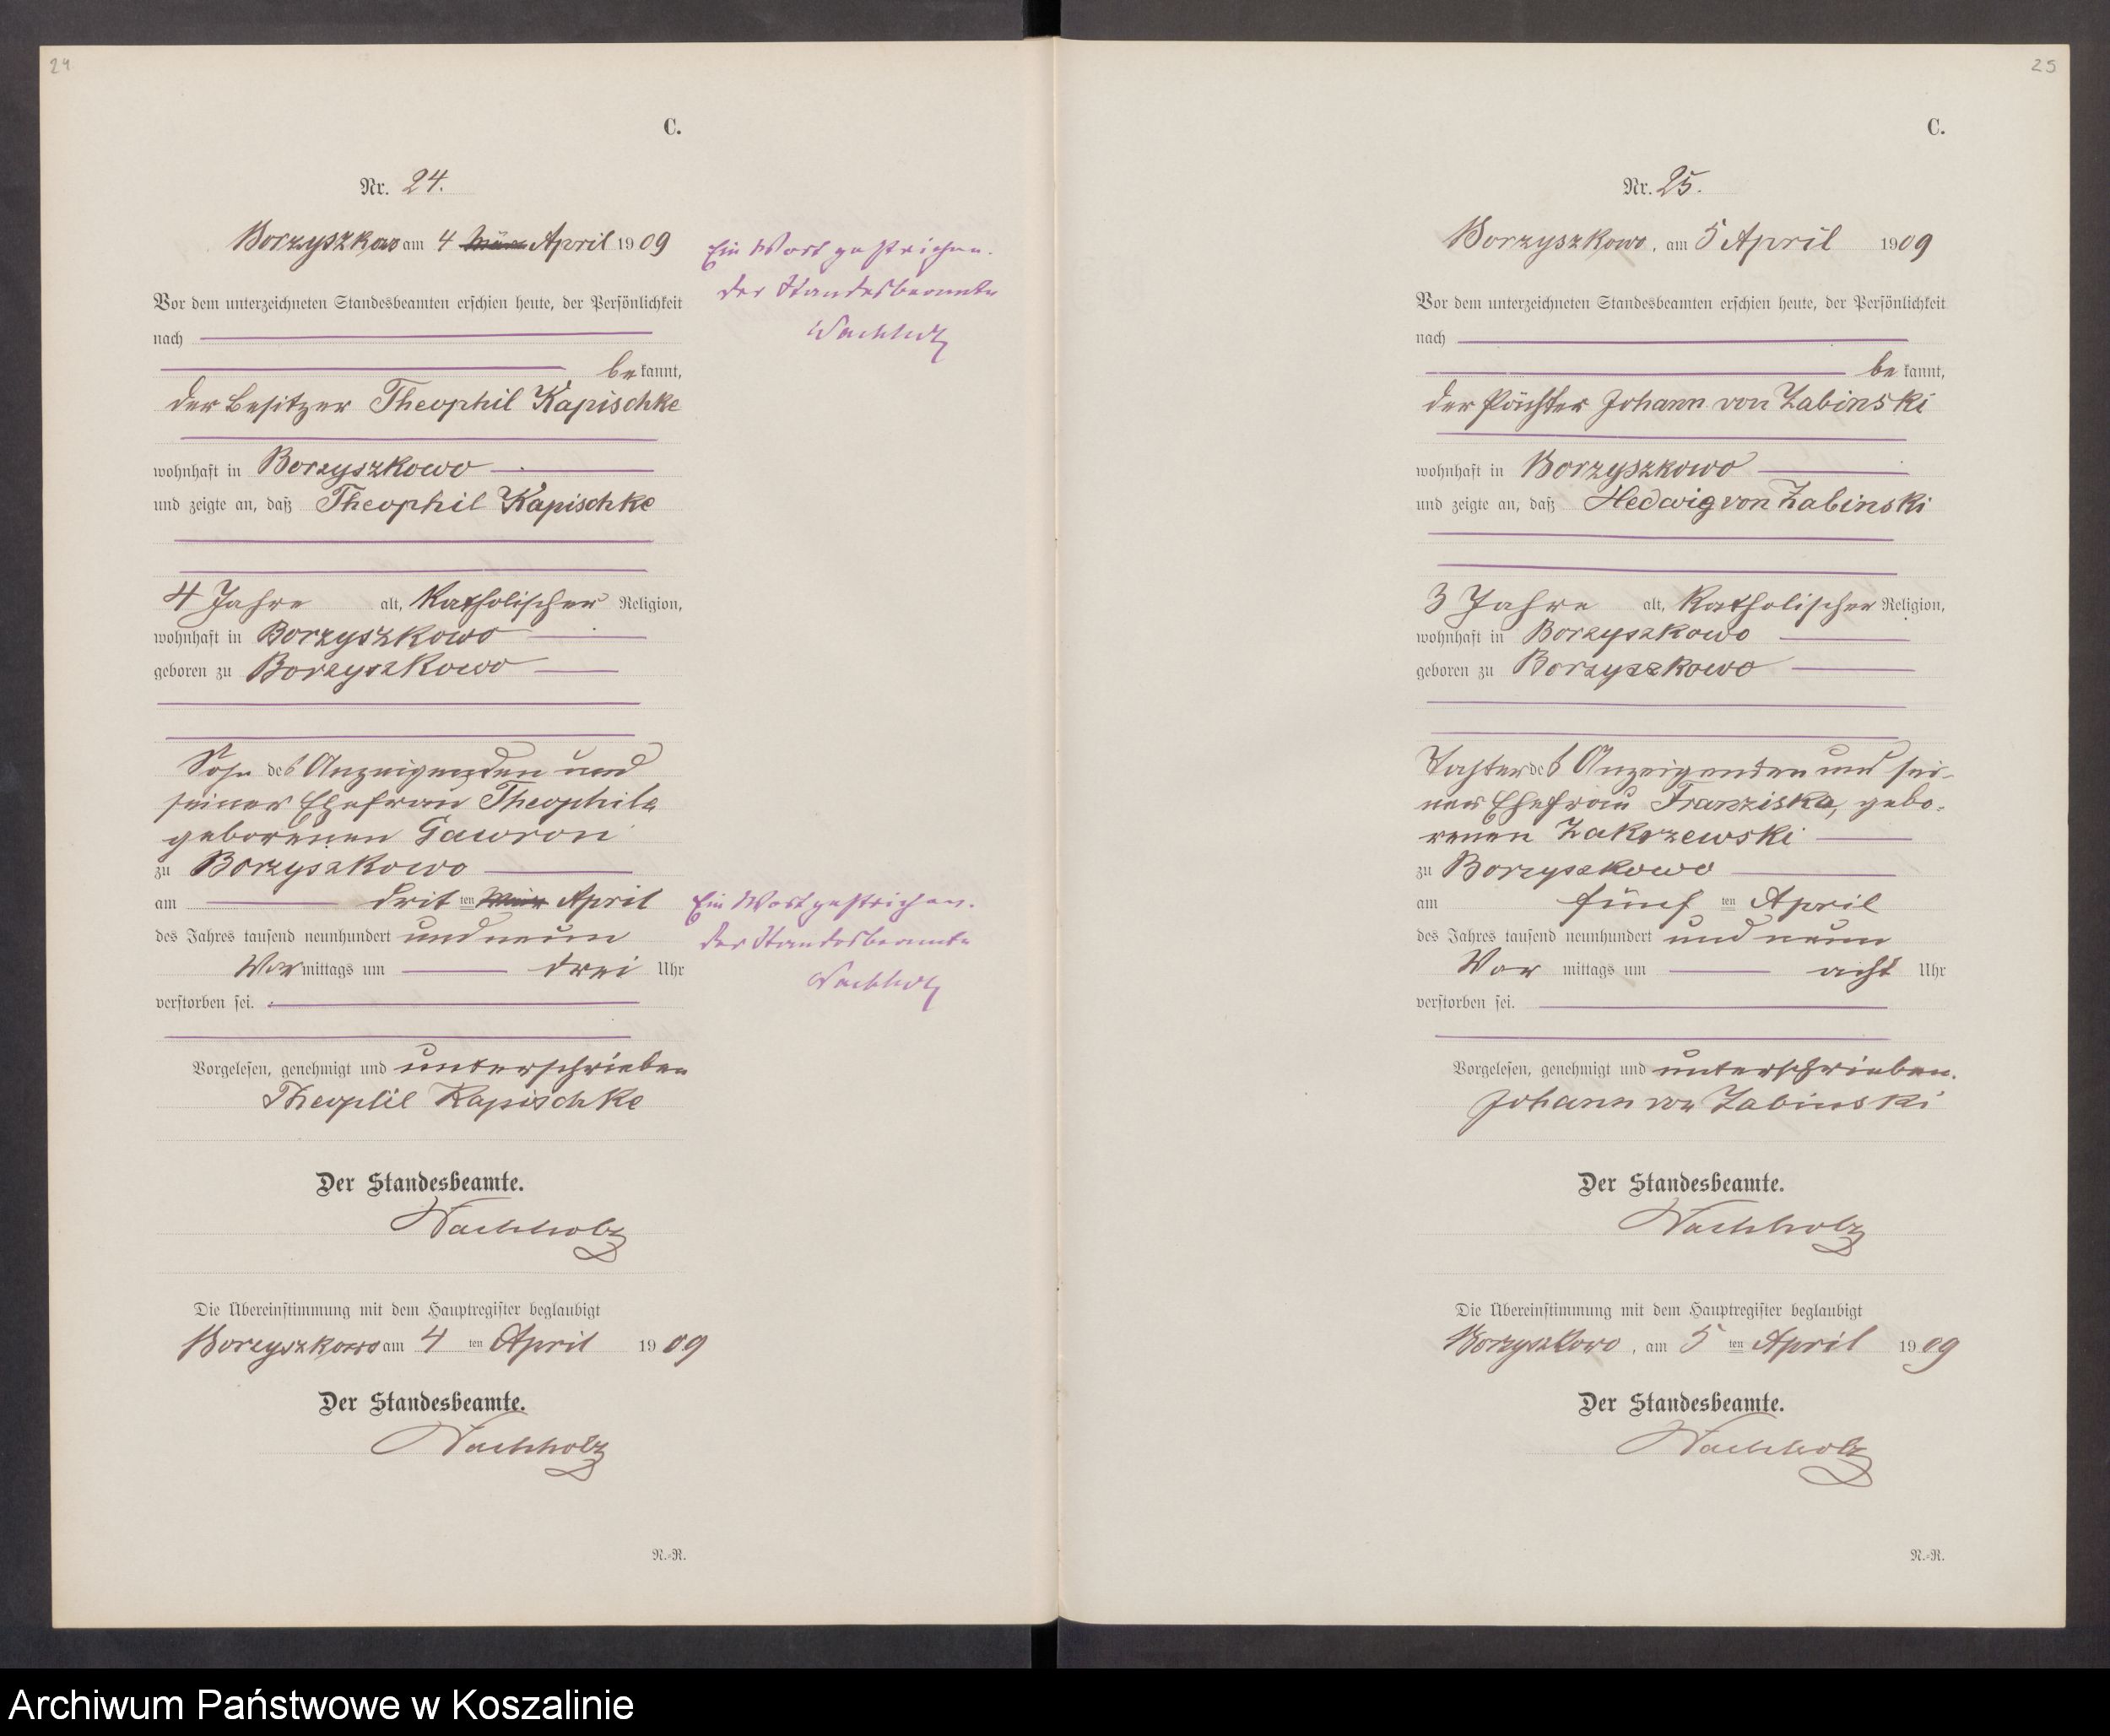 24
C.
Nr. 24.
Borzyszkowo am 4 März April 1909
Ein Wort gestrichen.
Der Standesbeamte
Wachholz
Vor dem unterzeichneten Standesbeamten erschien heute, der Persönlichkeit
nach
bekannt,
der Besitzer Theophil Kapischke
wohnhaft in Borzyszkowo
und zeigte an, daß Theophil Kapischke
4 Jahre alt, katholischer Religion,
wohnhaft in Borzyszkowo
geboren zu Borzyszkowo
Sohn des Anzeigenden und
seiner Ehefrau Theophila
geborenen Gawron
zu Borzyszkowo
am drit ten März April
Ein Wort gestrichen.
des Jahres tausend neunhundert und neun
Der Standesbeamte
Vormittags um drei Uhr
Wachholz
verstorben sei.
Vorgelesen, genehmigt und unterschrieben
Theophil Kapischke
Der Standesbeamte.
Wachholz
Die Übereinstimmung mit dem Hauptregister beglaubigt
Borzyszkowo am 4 ten April 1909
Der Standesbeamte.
Wachholz
N.-R.
25
C.
Nr. 25.
Borzyszkowo, am 5 April 1909
Vor dem unterzeichneten Standesbeamten erschien heute, der Persönlichkeit
nach
bekannt,
der Pächter Johann von Zabinski
wohnhaft in Borzyszkowo
und zeigte an, daß Hedwig von Zabinski
3 Jahre alt, katholischer Religion,
wohnhaft in Borzyszkowo
geboren zu Borzyszkowo
Tochter des Anzeigenden und sei-
ner Ehefrau Franziska, gebo-
renen Zakrzewski
zu Borzyszkowo
am fünf ten April
des Jahres tausend neunhundert und neun
Vor mittags um acht Uhr
verstorben sei.
Vorgelesen, genehmigt und unterschrieben.
Johann von Zabinski
Der Standesbeamte.
Wachholz
Die Übereinstimmung mit dem Hauptregister beglaubigt
Borzyszkowo, am 5 ten April 1909
Der Standesbeamte.
Wachholz
N.-R.
Archiwum Państwowe w Koszalinie